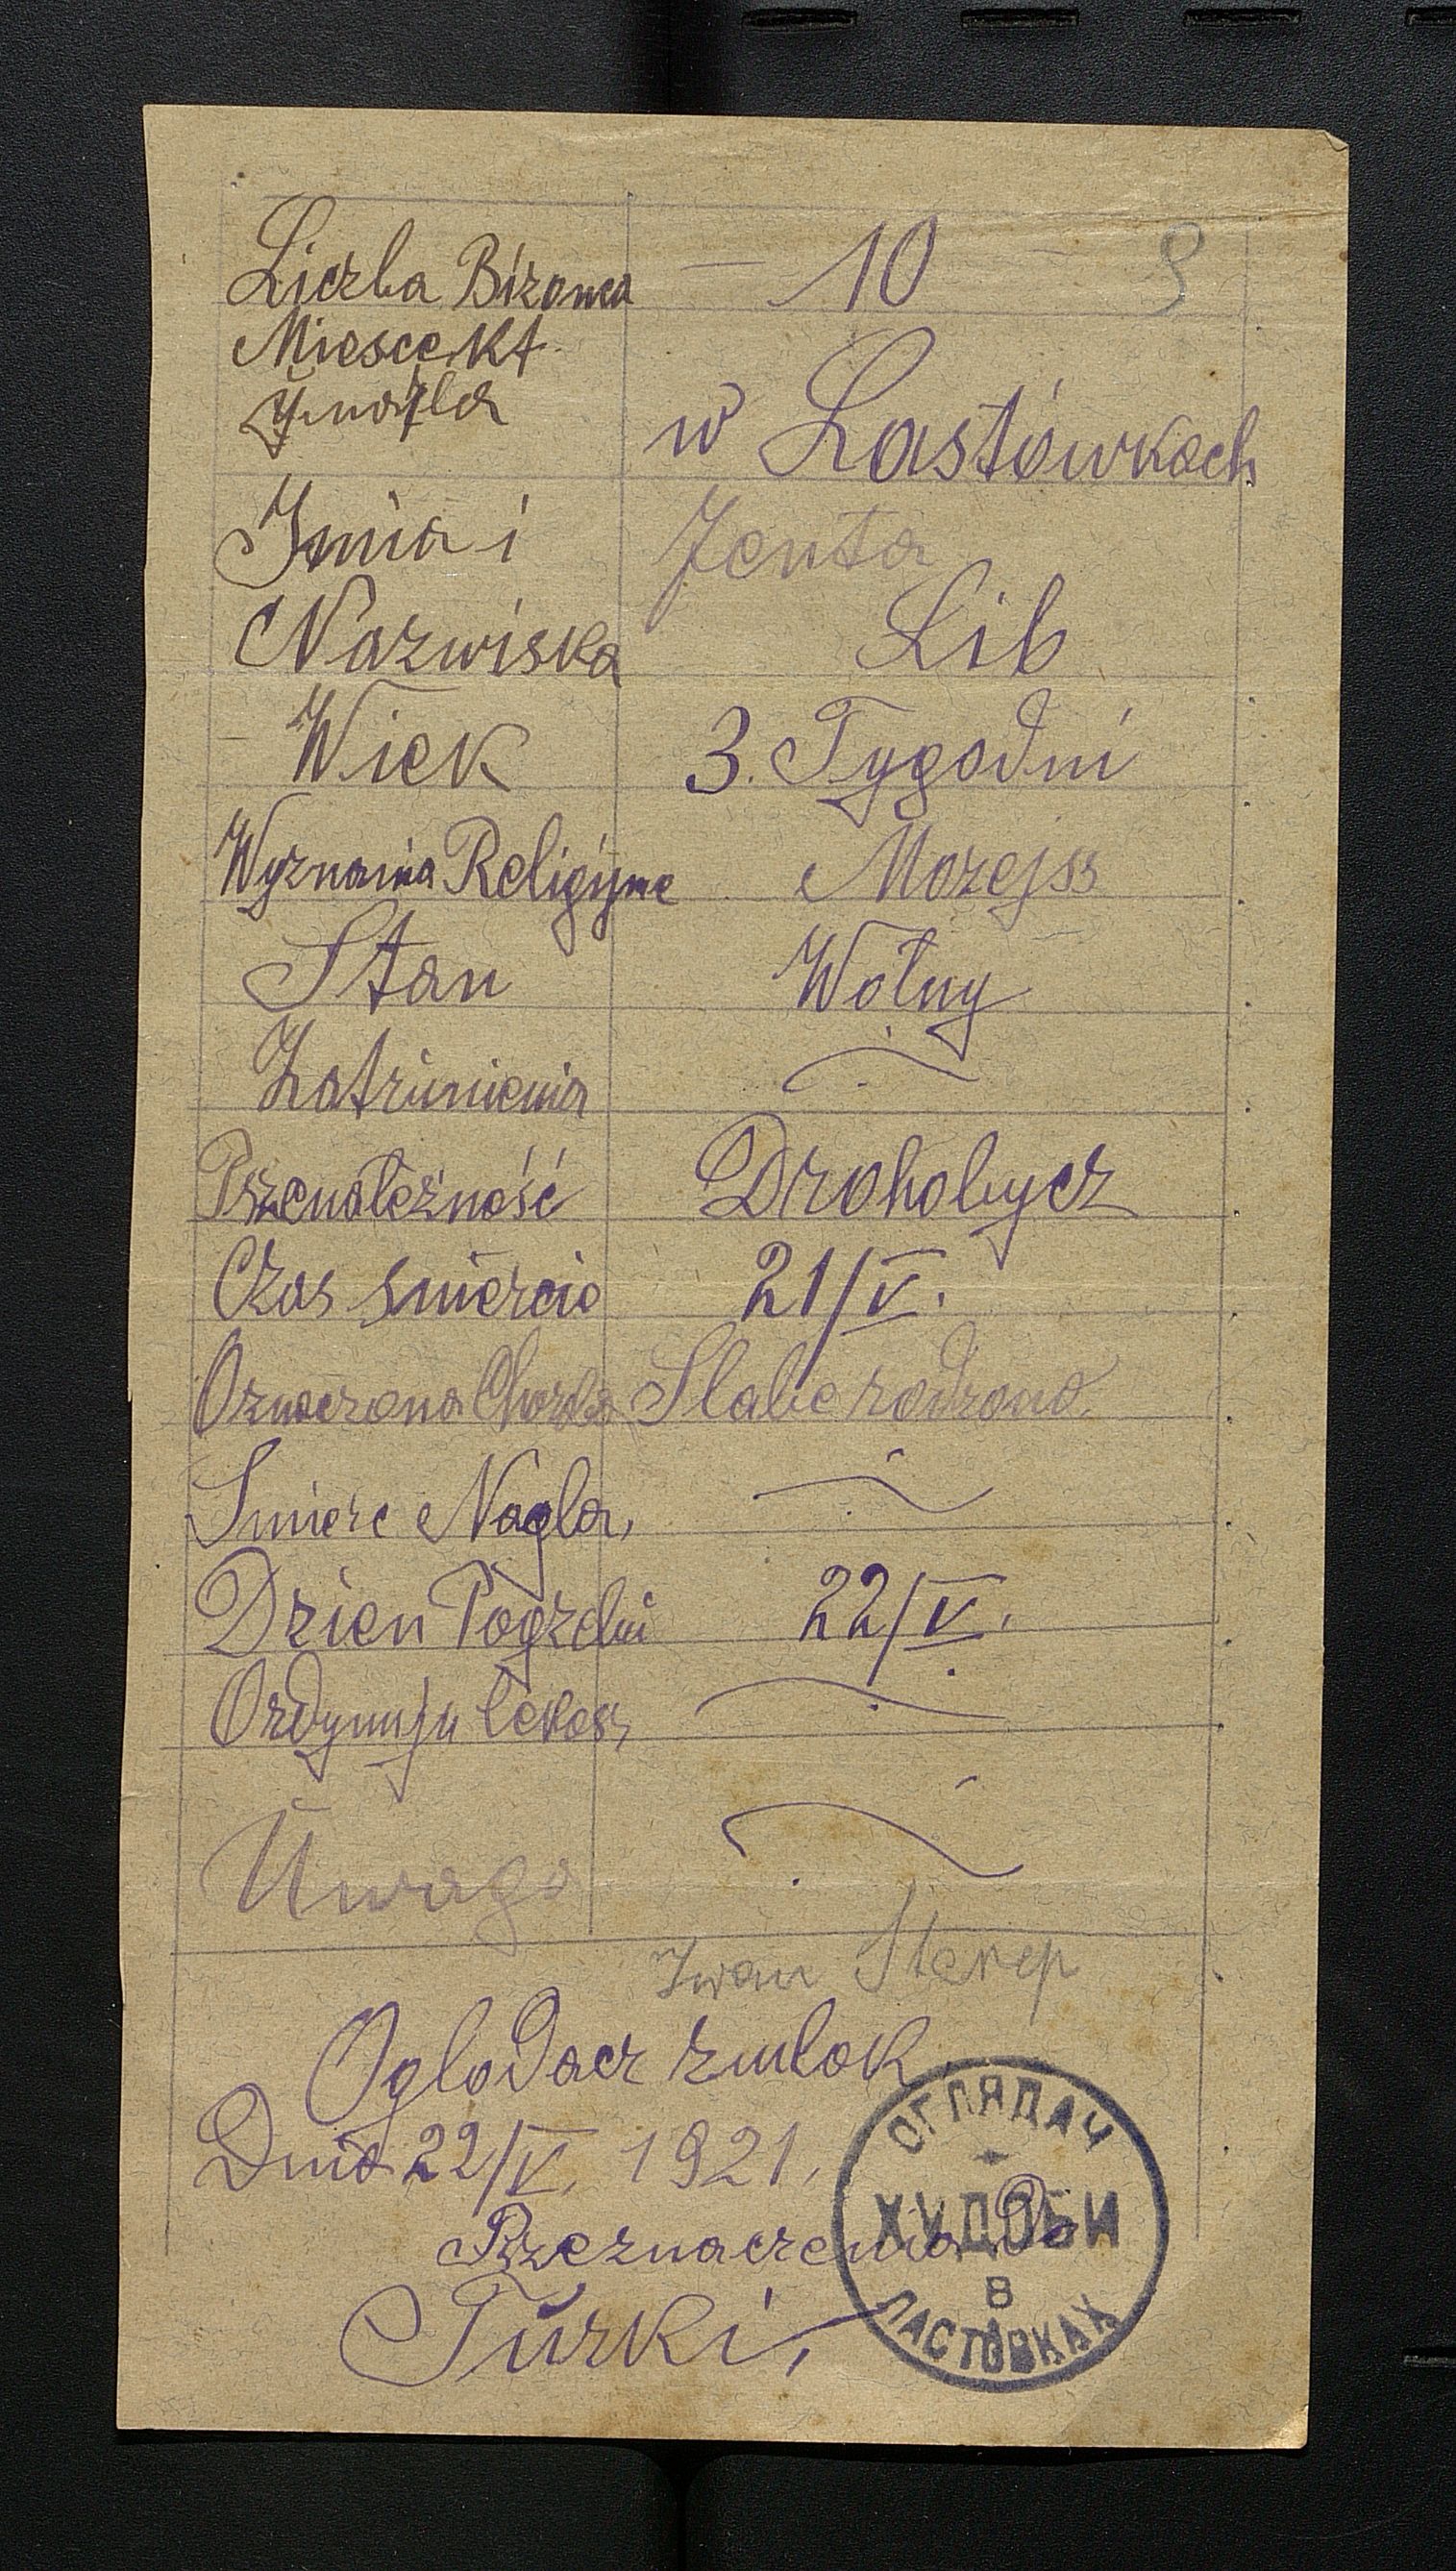 Liczba Biząnca — 10 — 9
Miesce Kt.
Zmarła w Lastówkach
Jmia i Jenta
Nazwiska Lib
Wiek 3. Tygodni
Wyznania Religijne Mozejss
Stan Wolny
Zatrunienia
Przenależność Drohobycz
Czos smiercie 21/V.
Oznaczona Slabe rodzono.
Smierc Nagla,
Dzien Pogrzebu 22/V.
Ordynuju lekosz
Uwago
Iwan
Oglodacz zwlok
Dnia 22/V. 1921.
Przeznaczenia Do
Turki,
ОГЛЯДАЧ
ХУДОБИ
В
ЛАСТІВКАХ